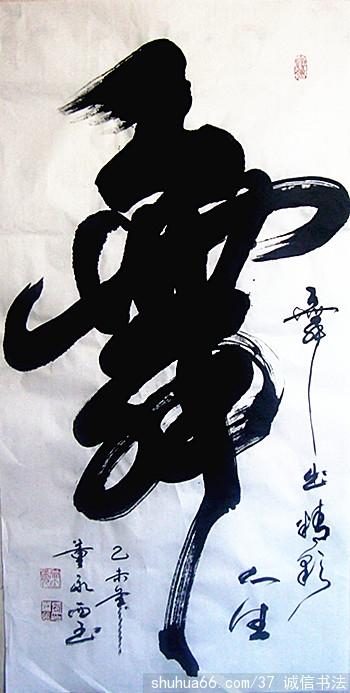 舞
舞出精彩
人生
乙未年
董永西书
shuhua66.com/37 诚信书法